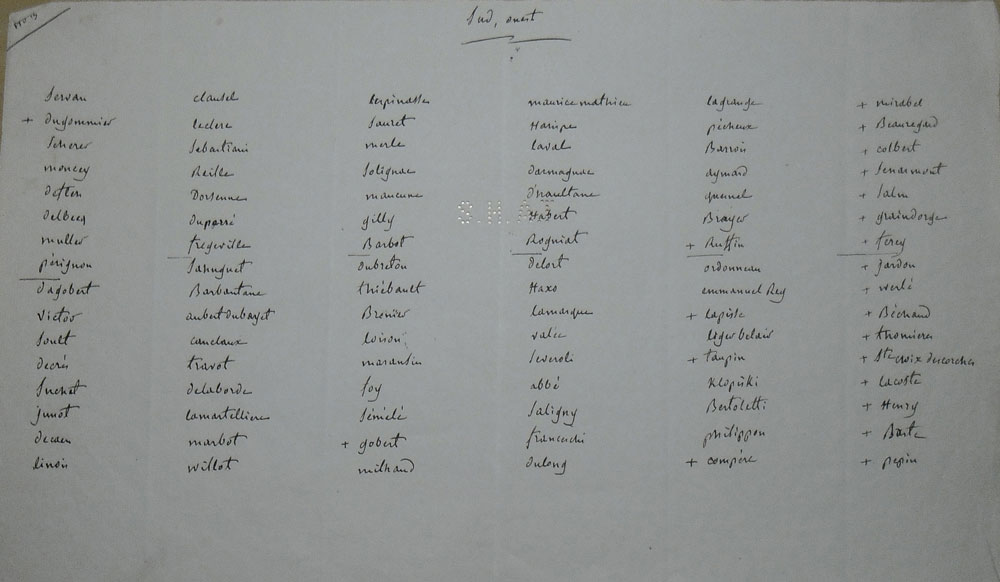 Sud, ouest
S.H.A.T
Servan clausel lespinasse maurice mathieu lagrange + mirabel
+ dugommier leclerc Sauret Harispe pécheux + Beauregard
Scherer Sebastiani merle laval Barrois + colbert
moncey Reille Solignac darmagnac aymard + Senarmont
Dorsenne maucune d'haultane quesnel + Salm
delbecq duparré gilly Habert Brayer + graindorge
muller fregeville Barbot Rogniat + Ruffin + ferey
pérignon Sahuguet dubreton delort ordonneau + Jardon
dagobert Barbantane thiébault Haxo emmanuel Rey + werlé
victor aubert dubayet Brenier lamarque + lapisse + Béchaud
Soult canclaux loison valée liger belair + thomieres
decrès travot maransin Severoli + taupin + Ste croix descorches
Suchet delaborde foy abbé Klopiski + lacoste
junot lamartelliere Sémélé Saligny Bertoletti + Henry
decaen marbot + gobert franceschi philippon + Barte
linois willot milhaud dulong + compère + pepin